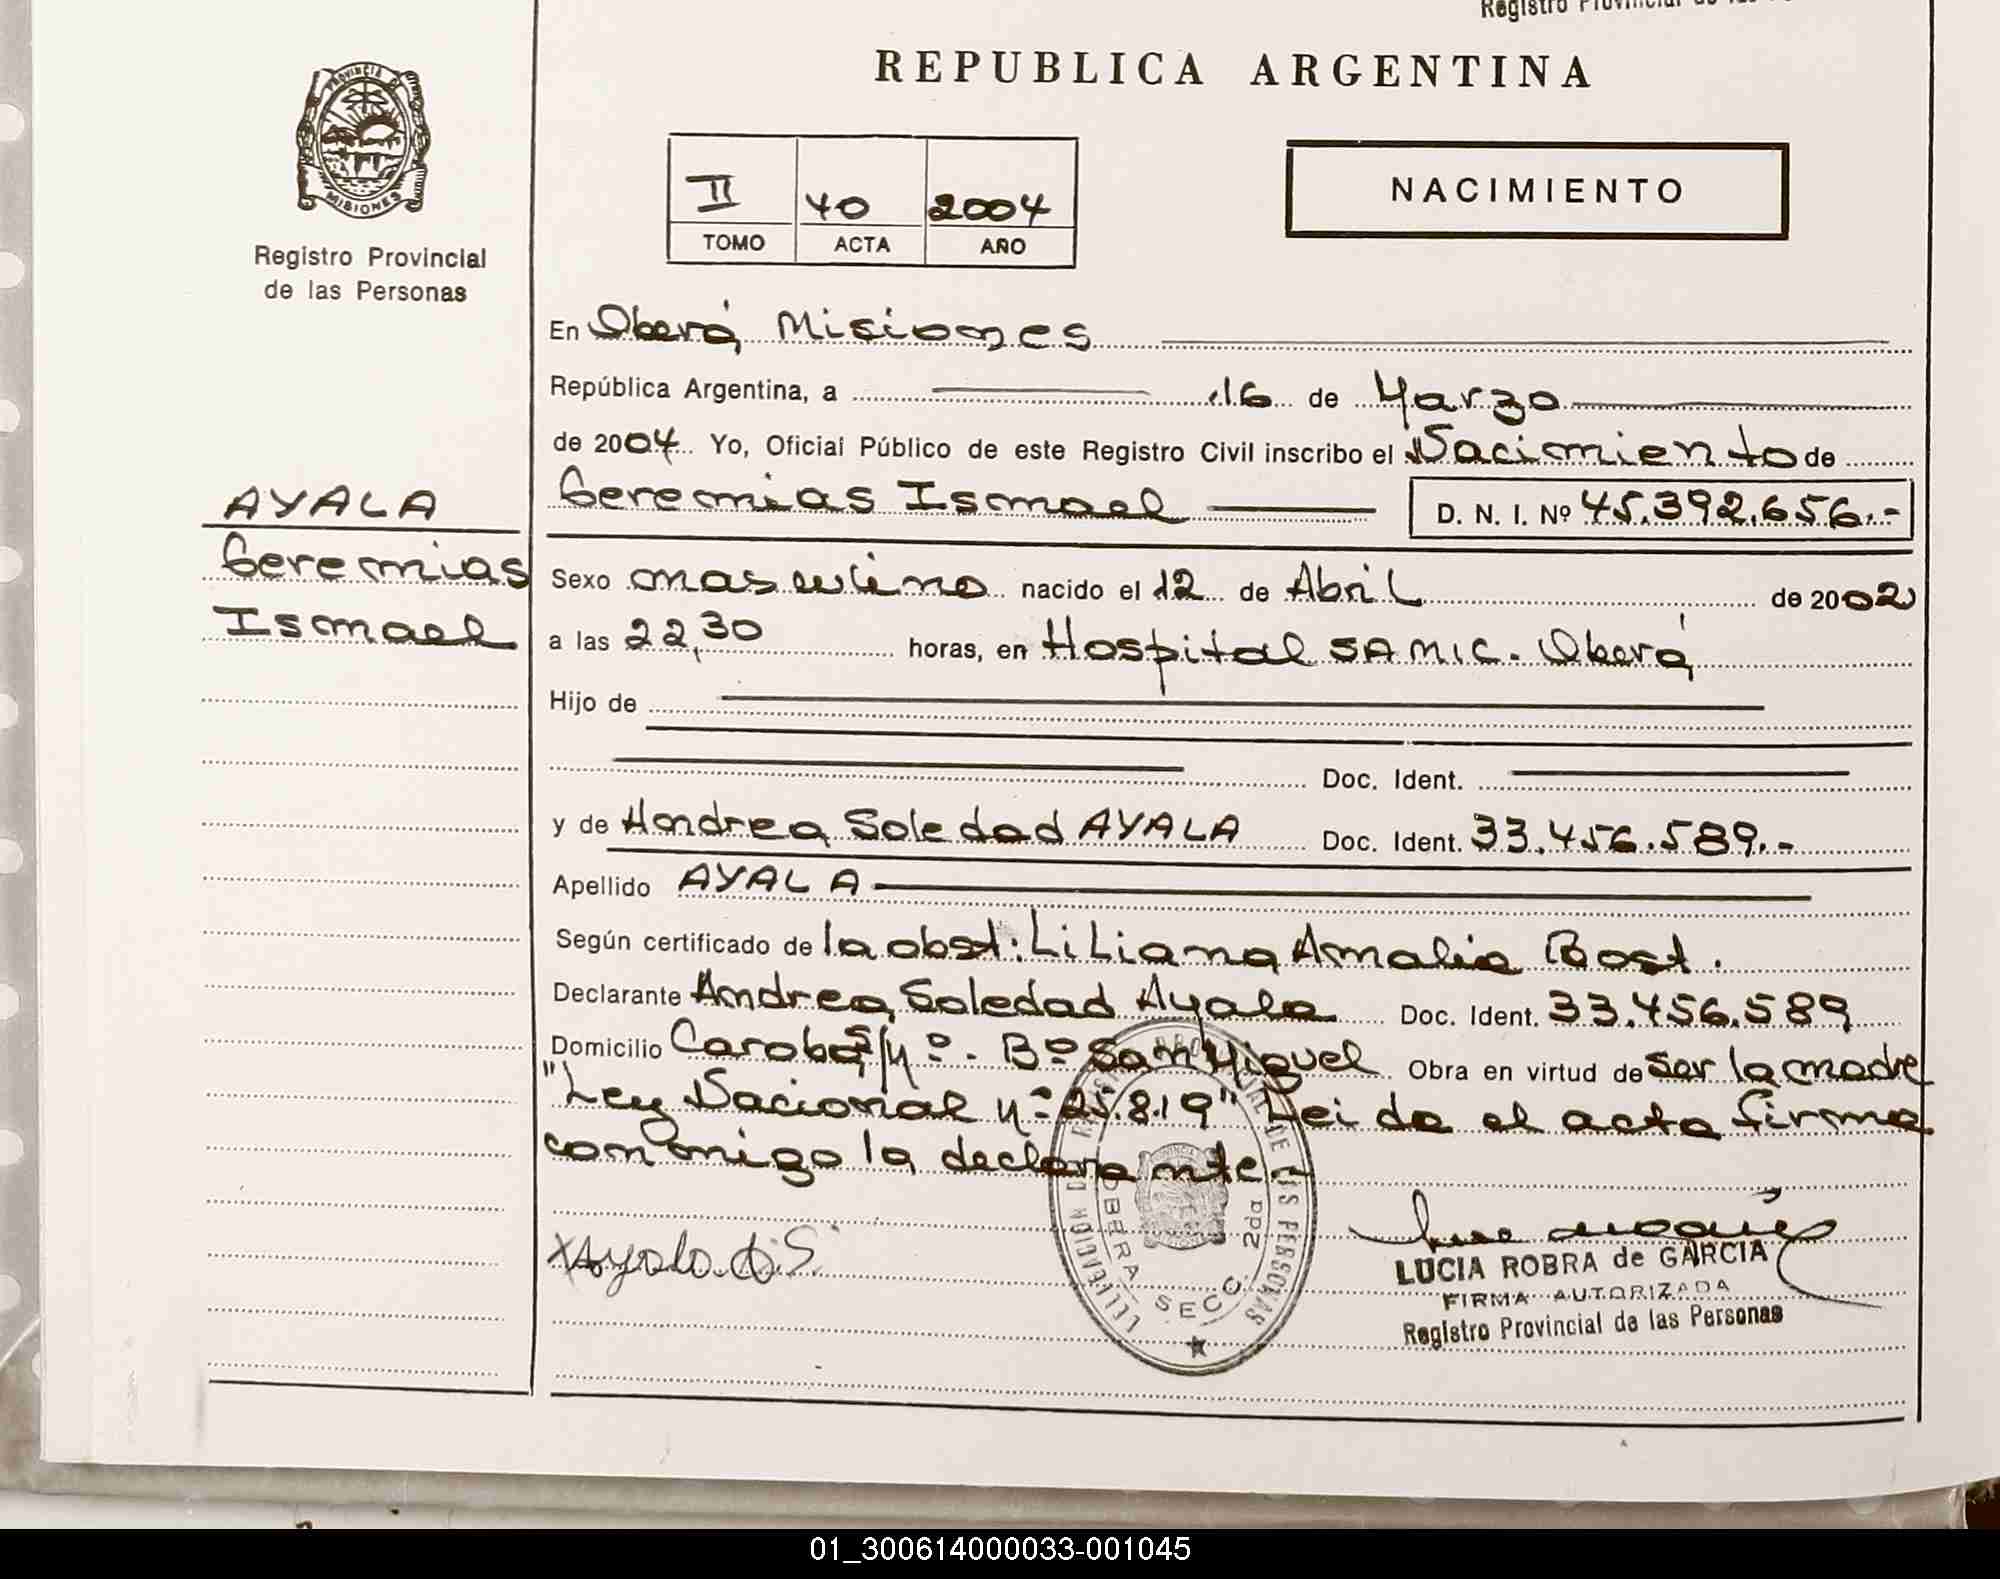 Registro Provincial de las
REPUBLICA ARGENTINA
PROVINCIA DE
MISIONES
Registro Provincial
de las Personas
II 40 2004
TOMO ACTA AÑO
NACIMIENTO
En Oberá, Misiones
República Argentina, a 16 de Marzo
de 2004 Yo, Oficial Público de este Registro Civil inscribo el Nacimiento de
Geremias Ismael D. N. I. Nº 45.392.656.-
AYALA
Geremias
Ismael
Sexo masculino nacido el 12 de Abril de 2002
a las 22,30 horas, en Hospital SAMIC. Oberá
Hijo de
Doc. Ident.
y de Andrea Soledad AYALA Doc. Ident. 33.456.589.-
Apellido AYALA
Según certificado de la obst: Liliana Amalia Bost.
Declarante Andrea Soledad Ayala Doc. Ident. 33.456.589
Domicilio Caroba s/nº. Bº San Miguel Obra en virtud de ser la madre
"Ley Nacional nº 25.819" Leida el acta firma
conmigo la declarante
Ayala A.S.
OBERA SECC. 2da
LUCIA ROBRA de GARCIA
FIRMA AUTORIZADA
Registro Provincial de las Personas
01_300614000033-001045